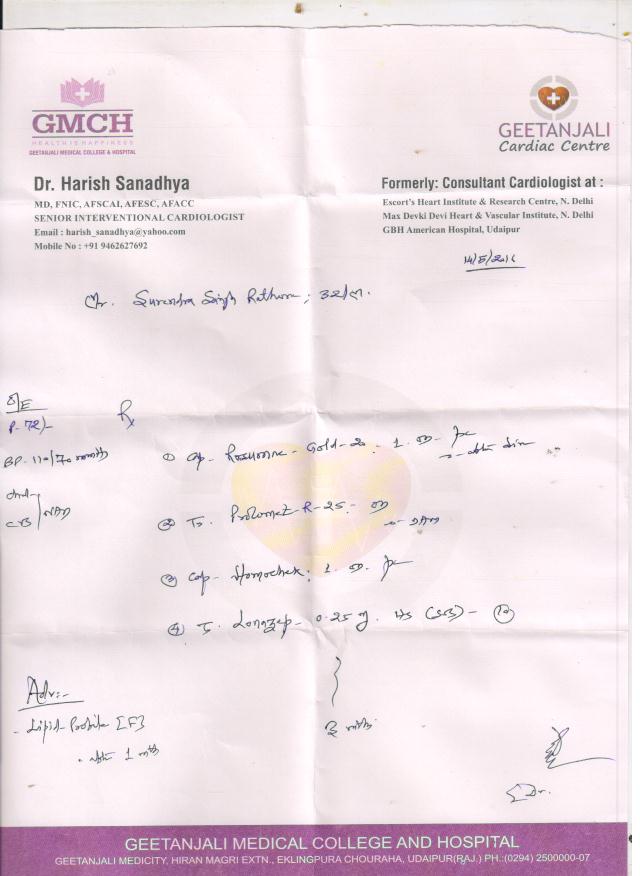 GMCH
HEALTH IS HAPPINESS
GEETANJALI MEDICAL COLLEGE & HOSPITAL
GEETANJALI
Cardiac Centre
Dr. Harish Sanadhya
MD, FNIC, AFSCAI, AFESC, AFACC
SENIOR INTERVENTIONAL CARDIOLOGIST
Email : harish_sanadhya@yahoo.com
Mobile No : +91 9462627692
Formerly: Consultant Cardiologist at :
Escort's Heart Institute & Research Centre, N. Delhi
Max Devki Devi Heart & Vascular Institute, N. Delhi
GBH American Hospital, Udaipur
Mr. Surendra Singh
O/E
P-72/-
BP-110/70
CVS
NAD
Rx
① Cap- Gold-20- 1
② T. Prolomet R-25-
③ Cap- Homochek: 1
④ T. Lonazep- 0.25 mg. HS (SOS)- 10
Adv:-
- Lipid-Profile [F]
1 mth
Dr.
GEETANJALI MEDICAL COLLEGE AND HOSPITAL
GEETANJALI MEDICITY, HIRAN MAGRI EXTN., EKLINGPURA CHOURAHA, UDAIPUR(RAJ.) PH.:(0294) 2500000-07